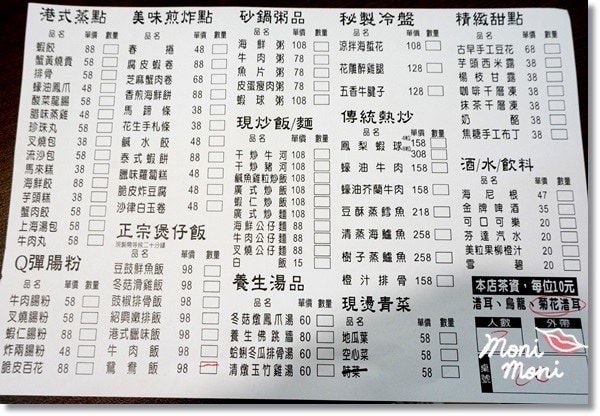 港式蒸點
品名 單價 數量
蝦餃 88
蟹黃燒賣 58
排骨 58
蠔油鳳爪 58
酸菜龍腸 58
腊味蒸雞 58
珍珠丸 58
叉燒包 38
流沙包 58
馬來糕 38
海鮮餃 88
芋頭糕 38
蟹肉餃 58
上海湯包 58
牛肉丸 58
Q彈腸粉
品名 單價 數量
牛肉腸粉 58
叉燒腸粉 58
蝦仁腸粉 88
炸兩腸粉 48
脆皮百花 88
美味煎炸點
品名 單價 數量
春捲 48
腐皮蝦卷 88
芝麻蟹肉卷 68
香煎海鮮餅 88
馬蹄條 38
花生手札條 38
鹹水餃 48
泰式蝦餅 88
臘味蘿蔔糕 48
脆皮炸豆腐 48
沙律白玉卷 48
正宗煲仔飯
現點需等候二十分鐘
品名 單價 數量
豆鼓鮮魚飯 98
冬菇滑雞飯 98
豉椒排骨飯 98
紹興嫩排飯 98
港式臘味飯 98
牛肉飯 98
鴛鴦飯 98
砂鍋粥品
品名 單價 數量
海鮮粥 108
牛肉粥 78
魚片粥 78
皮蛋瘦肉粥 78
蝦球粥 108
現炒飯/麵
品名 單價 數量
干炒牛河 108
干炒豬河 108
鹹魚雞粒炒飯 108
廣式炒飯 108
蝦仁炒飯 108
廣式炒麵 108
海鮮公仔麵 88
牛肉公仔麵 88
白飯 15
養生湯品
品名 單價 數量
冬菇燉鳳爪湯 60
養生佛跳牆 80
蛤蜊冬瓜排骨湯 60
清燉玉竹雞湯 60
秘製冷盤
品名 單價 數量
涼拌海蜇花 108
花雕醉雞腿 128
五香牛腱子 128
傳統熱炒
品名 單價 數量
鳳梨蝦球 158
308
蠔油牛肉 158
蠔油芥蘭牛肉 158
豆酥蒸鱈魚 218
清蒸海鱺魚 258
樹子蒸鱺魚 258
橙汁排骨 158
現燙青菜
品名 單價 數量
地瓜葉 58
空心菜 58
時菜 58
精緻甜點
品名 單價 數量
古早手工豆花 68
芋頭西米露 38
楊枝甘露 38
咖啡千層凍 38
抹茶千層凍 38
奶酪 38
焦糖手工布丁 38
酒/水/飲料
品名 單價 數量
海尼根 47
金牌啤酒 35
可口可樂 20
芬達汽水 20
美粒果柳橙汁 20
雪碧 20
本店茶資，每位10元
港耳、烏龍、菊花港耳
人數 外帶
桌號
Moni
Moni